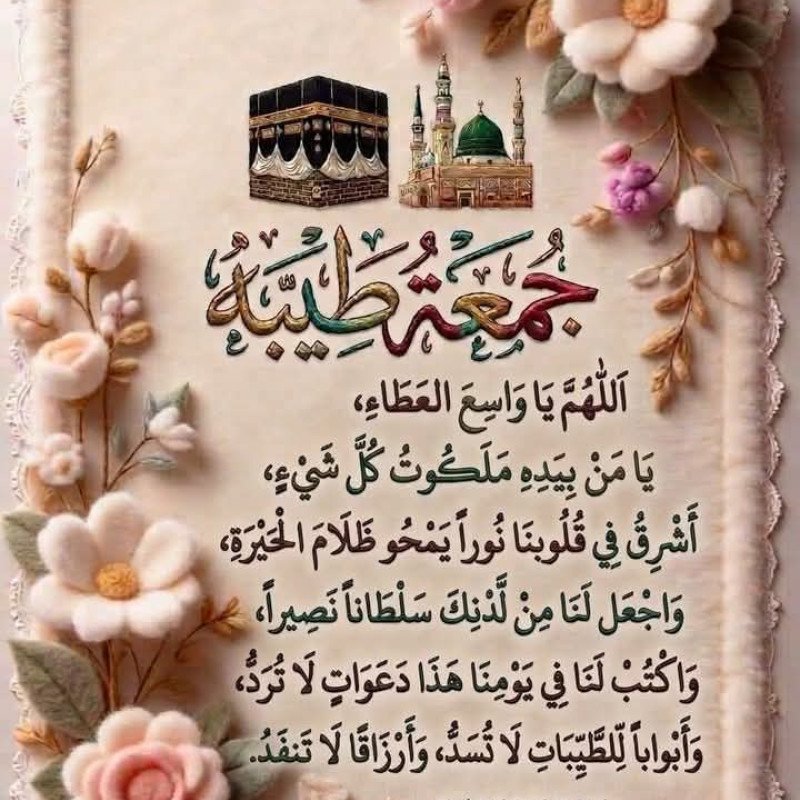 جُمعَةٌ طَيِّبَةٌ
اَللّٰهُمَّ يَا وَاسِعَ العَطَاءِ،
يَا مَنْ بِيَدِهِ مَلَكُوتُ كُلَّ شَيْءٍ،
أَشْرِقُ فِي قُلُوبنَا نُوراً يَمْحُو ظَلَامَ الْحَيْرَةِ،
وَاجْعَل لَنَا مِنْ لَّدُنِكَ سَلْطَاناً نَصِيراً،
وَاكْتُبْ لَنَا فِي يَوْمِنَا هَذَا دَعَوَاتٍ لَا تُرَدُّ،
وَأَبْوَاباً لِّلطَّيِّبَاتِ لَا تُسَدُّ، وَأَرْزَاقًا لَا تَنفَدُ.